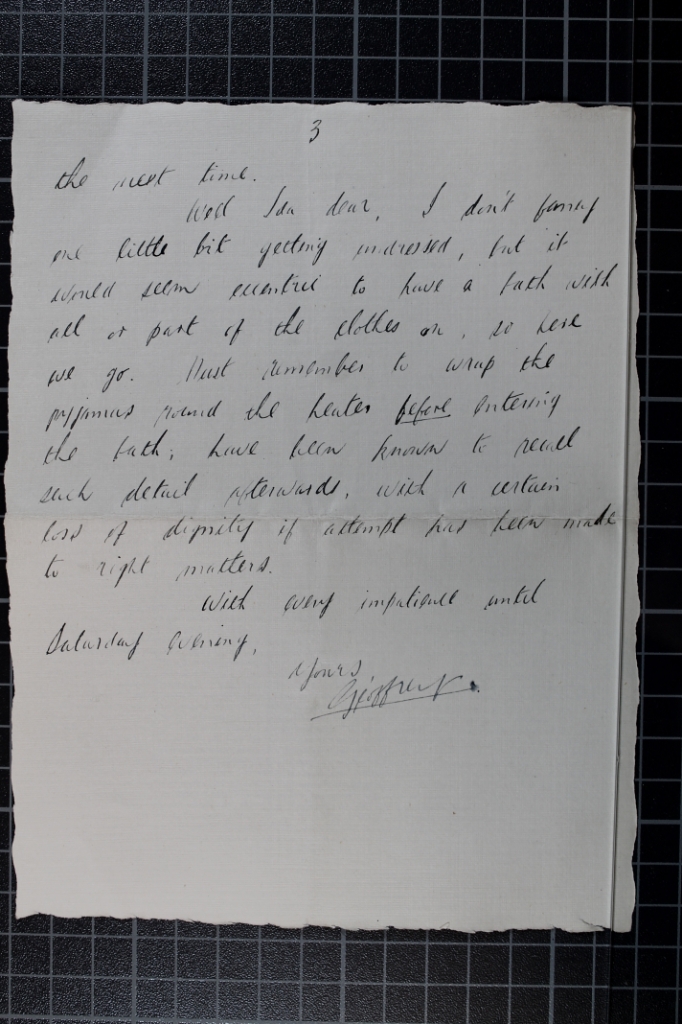 3
the next time.
Well Ida dear, I don't fancy
one little bit getting undressed, but it
would seem eccentric to have a bath with
all or part of the clothes on, so here
we go. Must remember to wrap the
pyjamas round the heater before entering
the bath; have been known to recall
such detail afterwards, with a certain
loss of dignity if attempt has been made
to right matters.
With every impatience until
Saturday evening,
Yours
Geoffrey.